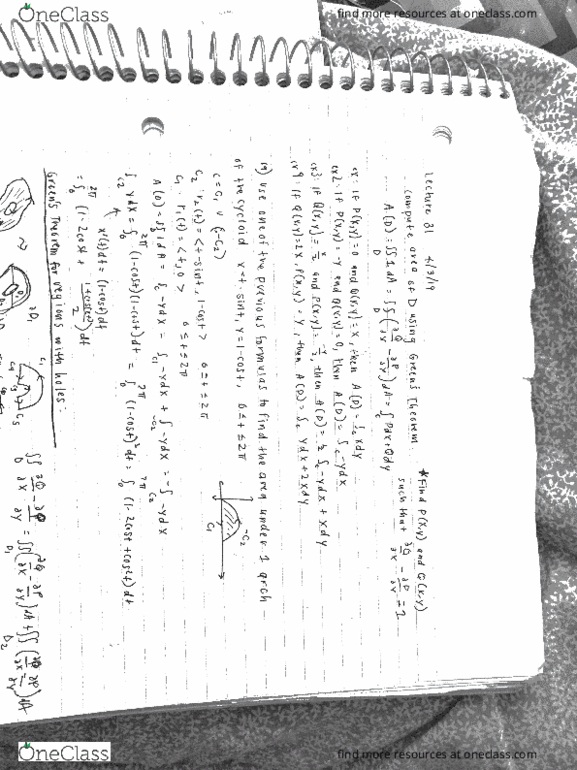 OneClass
find more resources at oneclass.com
Lecture 31 4/3/19
compute area of D using Greens Theorem
*Find P(x,y) and Q(x,y)
such that ∂Q/∂x - ∂P/∂y = 1
A(D) = ∬_D 1 dA = ∬_D (∂Q/∂x - ∂P/∂y) dA = ∫_C Pdx + Qdy
ex: If P(x,y) = 0 and Q(x,y) = x, then A(D) = ∫_C xdy
ex2: If P(x,y) = -y and Q(x,y) = 0, then A(D) = ∫_C -ydx
ex3: If Q(x,y) = x/2 and P(x,y) = -y/2, then A(D) = 1/2 ∫_C -ydx + xdy
ex4: If Q(x,y) = 2x, P(x,y) = y, then A(D) = ∫_C ydx + 2xdy
use one of the previous formulas to find the area under 1 arch
of the cycloid x = t - sint, y = 1 - cost, 0 ≤ t ≤ 2π
C = C₁ ∪ (-C₂)
-C₂
C₁
C₂ r₂(t) = <t - sint, 1 - cost> 0 ≤ t ≤ 2π
C₁ r₁(t) = <t, 0> 0 ≤ t ≤ 2π
A(D) = ∬_D 1 dA = ∫_C -ydx = ∫_C₁ -ydx + ∫_-C₂ -ydx = -∫_C₂ -ydx
∫_C₂ ydx = ∫₀^2π (1-cost)(1-cost)dt = ∫₀^2π (1-cost)² dt = ∫₀^2π (1 - 2cost + cos²t) dt
x'(t)dt = (1-cost)dt
= ∫₀^2π (1 - 2cost + (1+cos(2t))/2) dt
Greens Theorem for regions with holes:
OneClass
find more resources at oneclass.com